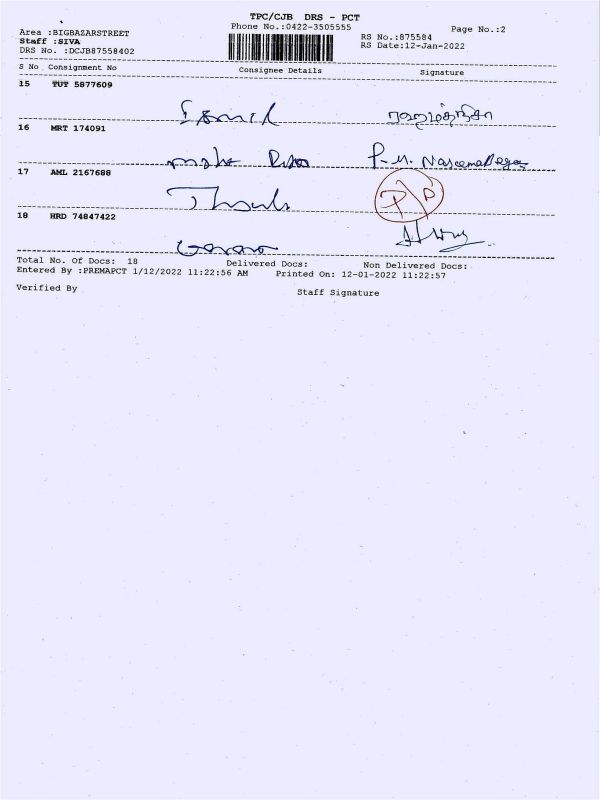 TPC/CJB DRS - PCT
Area :BIGBAZARSTREET Phone No.:0422-3505555 Page No.:2
Staff :SIVA RS No.:875584
DRS No. :DCJB87558402 RS Date:12-Jan-2022
S No Consignment No Consignee Details Signature
15 TUT 5877609
16 MRT 174091
P.M. Naseema Begam
17 AML 2167688
18 HRD 74847422
Total No. Of Docs: 18 Delivered Docs: Non Delivered Docs:
Entered By :PREMAPCT 1/12/2022 11:22:56 AM Printed On: 12-01-2022 11:22:57
Verified By Staff Signature